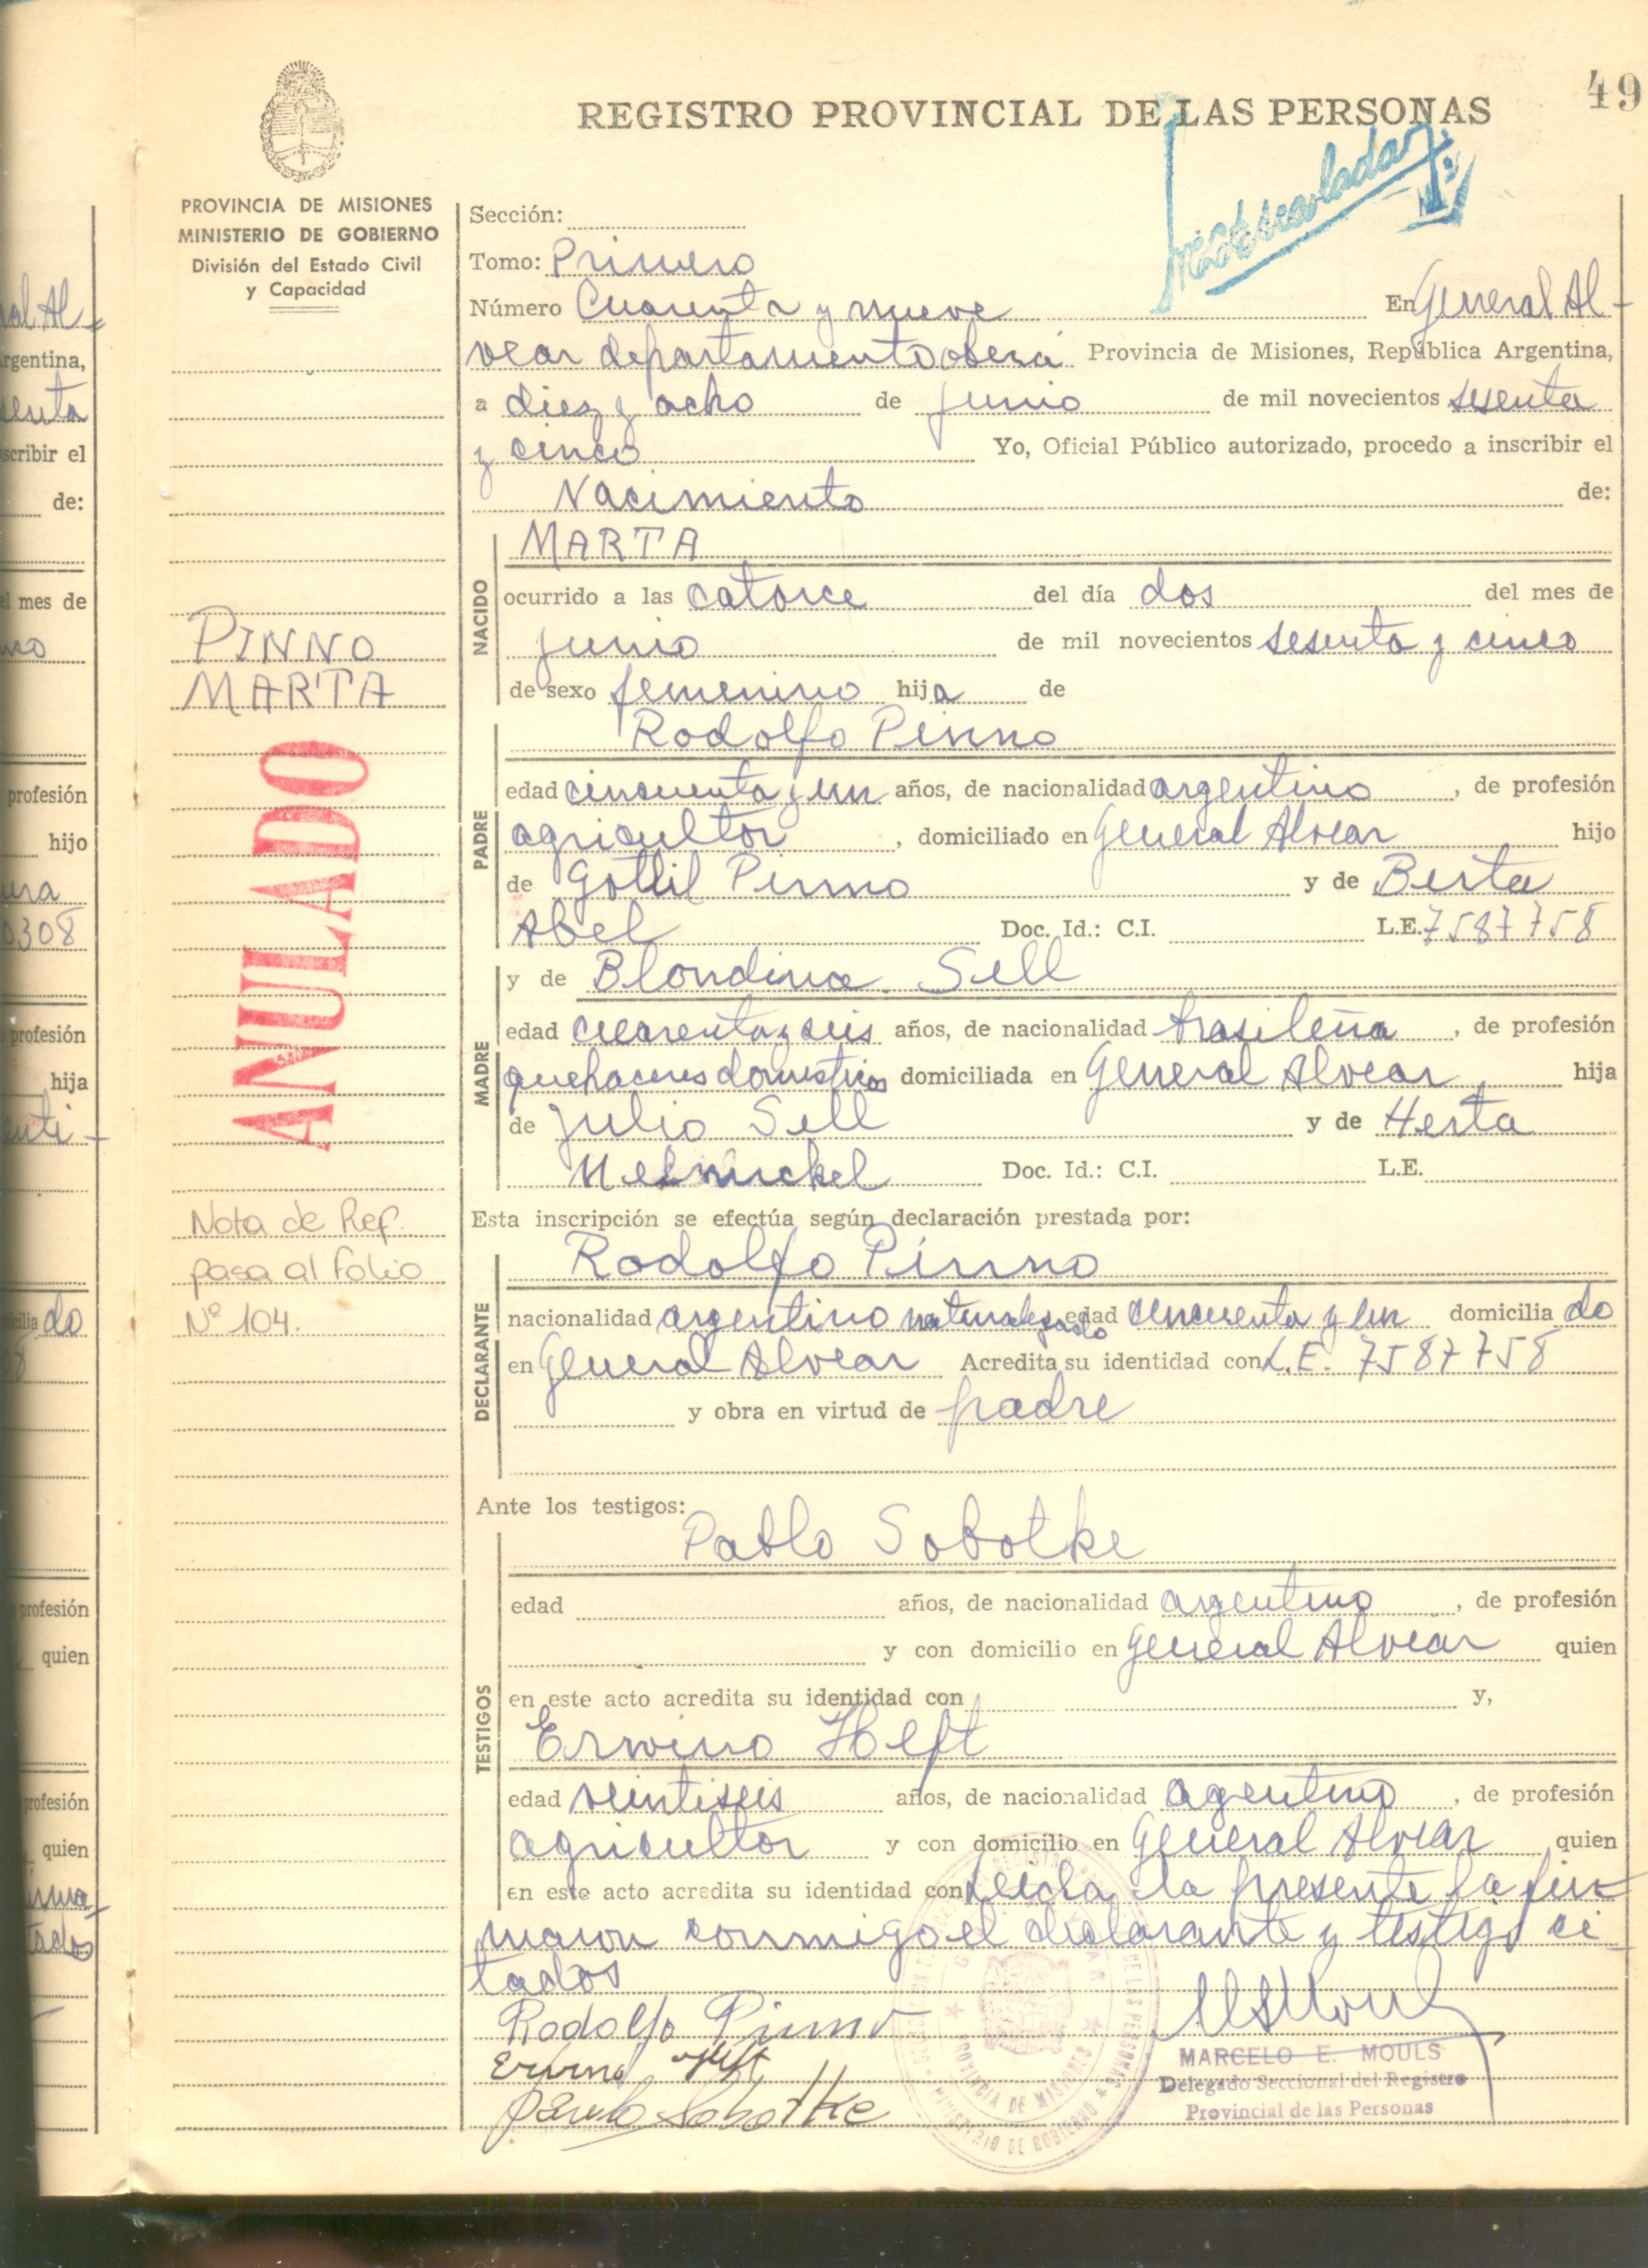 49
REGISTRO PROVINCIAL DE LAS PERSONAS
PROVINCIA DE MISIONES
MINISTERIO DE GOBIERNO
División del Estado Civil
y Capacidad
Sección:
Tomo: Primero
Número Cuarenta y nueve En General Al-
vear departamento oberá Provincia de Misiones, República Argentina,
a diez y ocho de junio de mil novecientos sesenta
y cinco Yo, Oficial Público autorizado, procedo a inscribir el
Nacimiento de:
NACIDO
MARTA
ocurrido a las catorce del día dos del mes de
junio de mil novecientos sesenta y cinco
de sexo femenino hija de
PINNO
MARTA
ANULADO
PADRE
Rodolfo Pinno
edad cincuenta y un años, de nacionalidad argentino, de profesión
agricultor, domiciliado en General Alvear hijo
de Gottlil Pinno y de Berta
Abel Doc. Id.: C.I. L.E. 7587758
y de Blondina Sell
MADRE
edad cuarenta y seis años, de nacionalidad brasileña, de profesión
quehaceres domesticos domiciliada en General Alvear hija
de Julio Sell y de Herta
Doc. Id.: C.I. L.E.
Nota de Ref.
pasa al Folio
Nº 104.
Esta inscripción se efectúa según declaración prestada por:
DECLARANTE
Rodolfo Pinno
nacionalidad argentino naturalizado edad cincuenta y un domiciliado
en General Alvear Acredita su identidad con L.E. 7587758
y obra en virtud de padre
Ante los testigos:
TESTIGOS
Pablo Sobotke
edad años, de nacionalidad argentino, de profesión
y con domicilio en General Alvear quien
en este acto acredita su identidad con y,
Erwino Heft
edad veintiseis años, de nacionalidad agentino, de profesión
agricultor y con domicilio en General Alvear quien
en este acto acredita su identidad con Leida la presente la fir-
maron conmigo el declarante y testigo ci-
tados
Rodolfo Pinno
Erwino Heft
Pablo Sobotke
MARCELO E. MOULS
Delegado Seccional del Registro
Provincial de las Personas
PROVINCIA DE MISIONES
MINISTERIO DE GOBIERNO